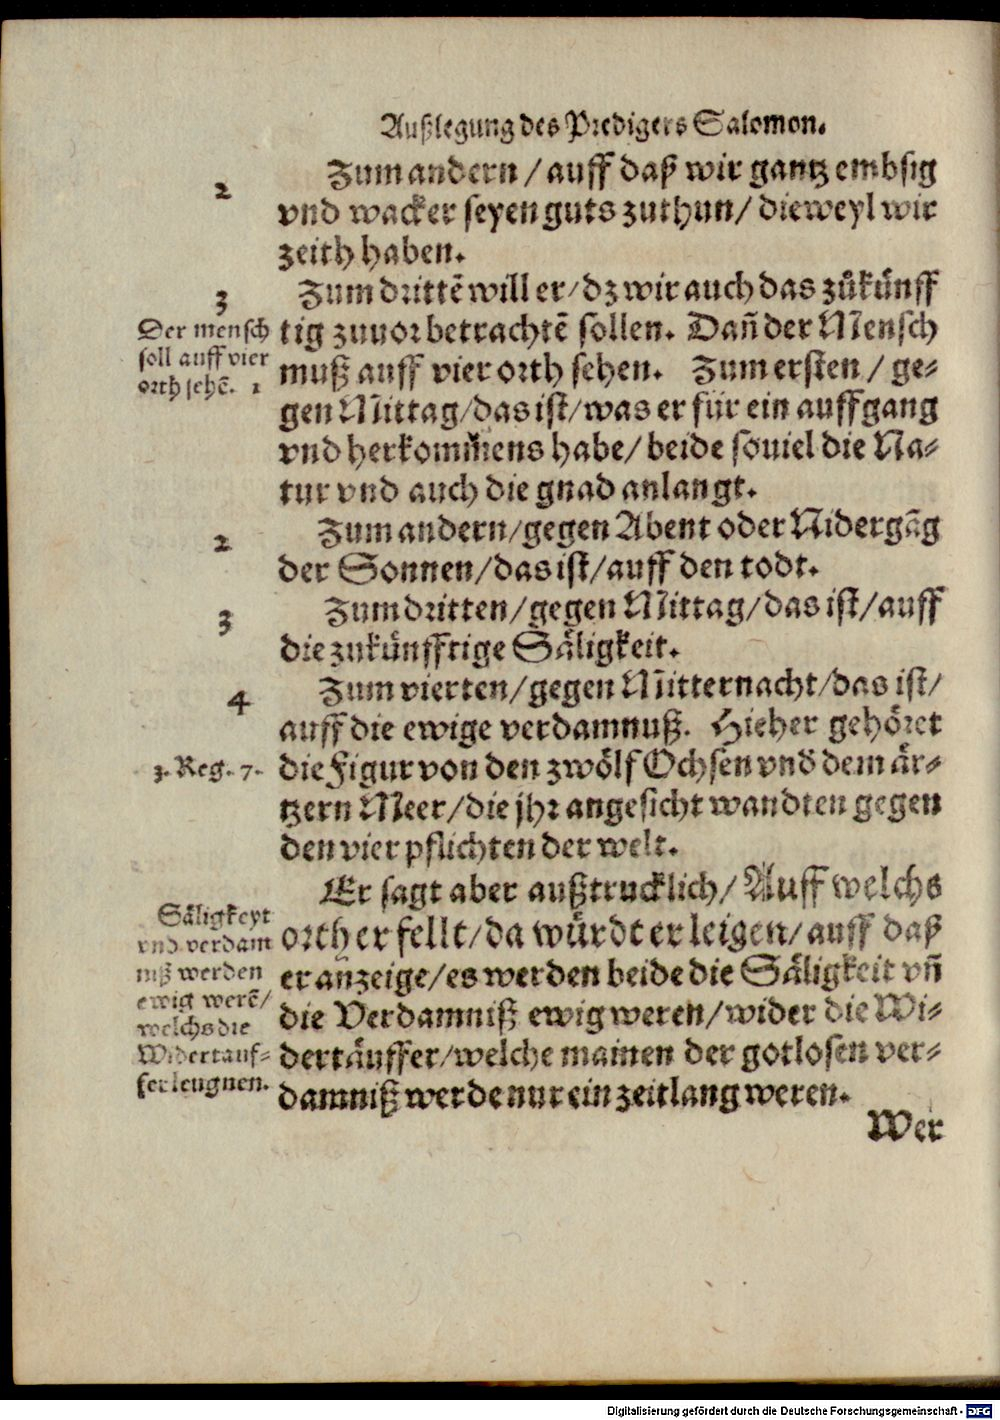 Außlegung des Predigers Salomon.
2
Zum andern / auff daß wir gantz embsig
vnd wacker seyen guts zuthun / dieweyl wir
zeith haben.
3
Zum drittẽ will er / dz wir auch das zůkünff
Der mensch
soll auff vier
orth sehẽ. 1
tig zuuor betrachtẽ sollen. Dañ der Mensch
muß auff vier orth sehen. Zum ersten / ge-
gen Mittag / das ist / was er für ein auffgang
vnd herkom̃ens habe / beide souiel die Na-
tur vnd auch die gnad anlangt.
2
Zum andern / gegen Abent oder Nidergãg
der Sonnen / das ist / auff den todt.
3
Zum dritten / gegen Mittag / das ist / auff
die zukünfftige Säligkeit.
4
Zum vierten / gegen Mitternacht / das ist /
auff die ewige verdamnuß. Hieher gehöret
3. Reg. 7.
die Figur von den zwölf Ochsen vnd dem är-
tzern Meer / die jhr angesicht wandten gegen
den vier pflichten der welt.
Er sagt aber außtrucklich / Auff welchs
Säligkeyt
vnd verdam
niß werden
ewig werẽ /
welchs die
Widertauf-
fer leugnen.
orth er fellt / da würdt er leigen / auff daß
er anzeige / es werden beide die Säligkeit vñ
die Verdamniß ewig weren / wider die Wi-
dertäuffer / welche mainen der gotlosen ver-
damniß werde nur ein zeitlang weren.
Wer
Digitalisierung gefördert durch die Deutsche Forschungsgemeinschaft - DFG